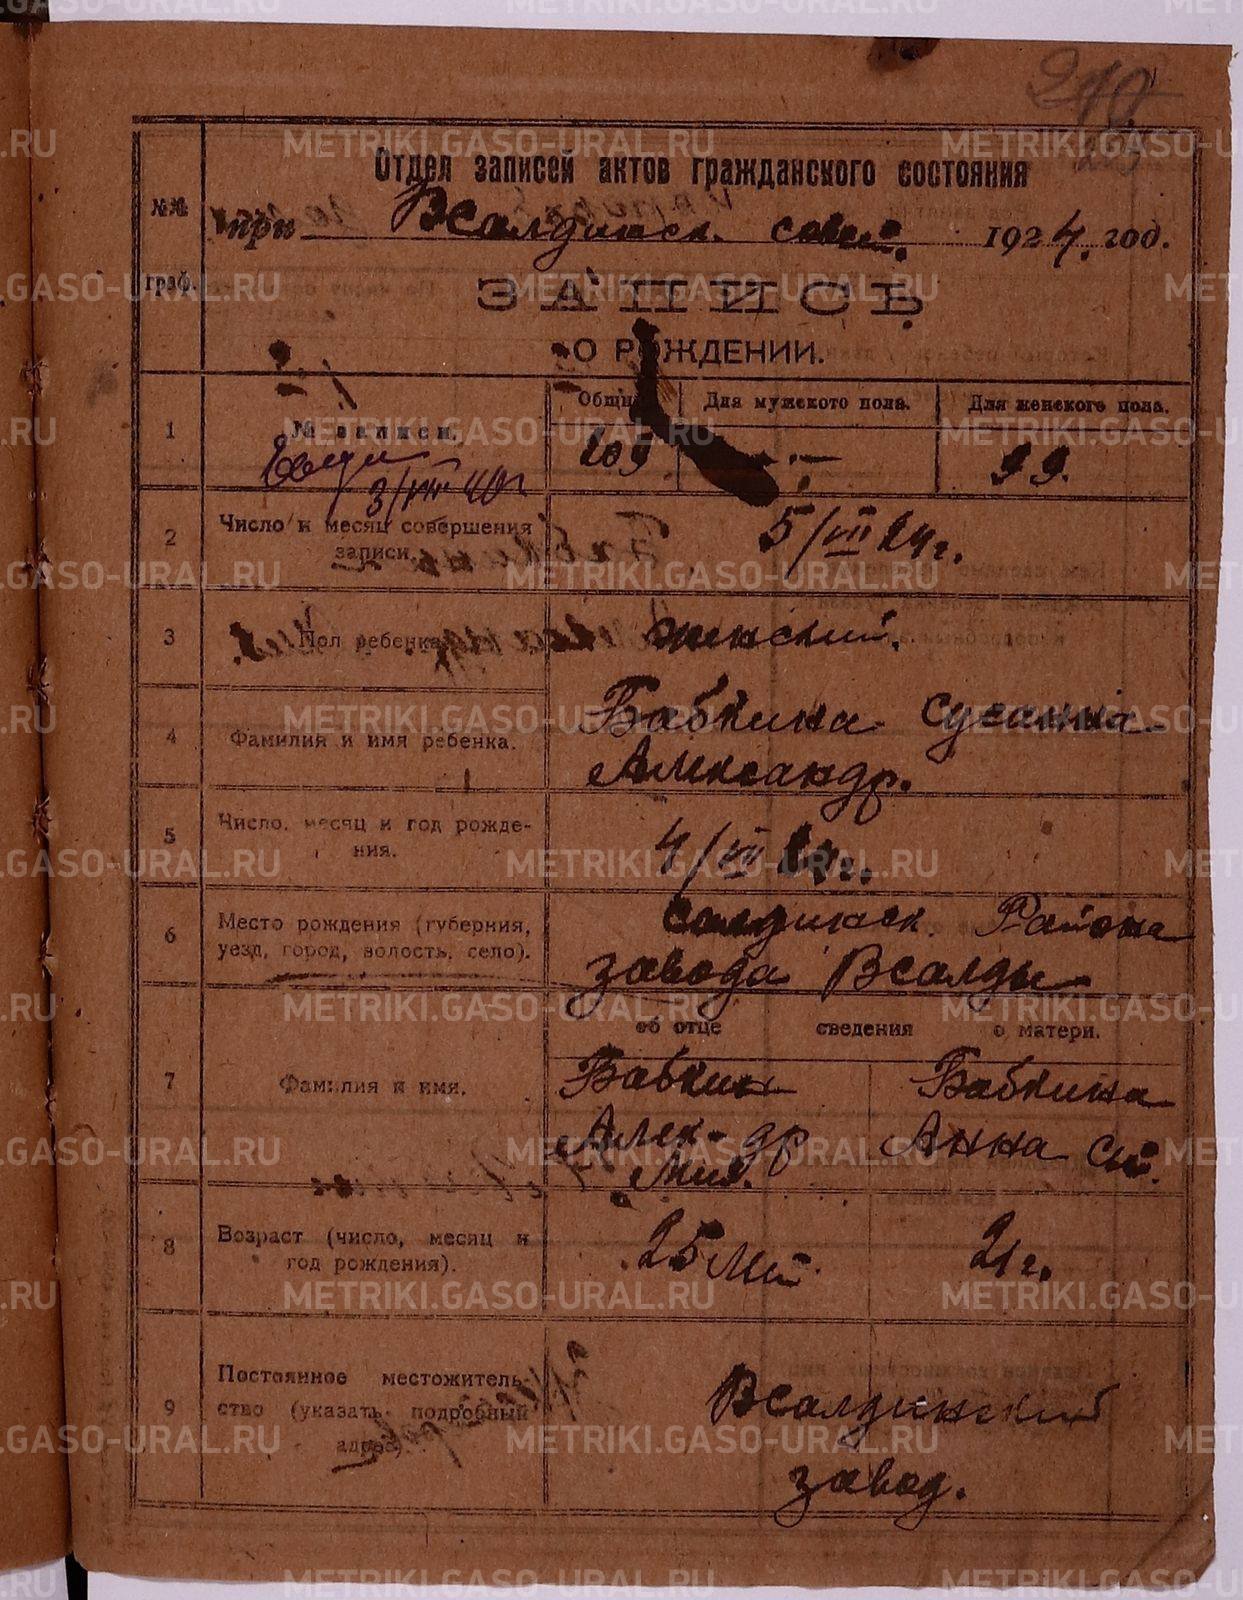 Отдел записей актов гражданского состояния
при Всалдинск. совет. 1924 год.
№№ граф.
ЗАПИСЬ
О РОЖДЕНИИ.
1
№ записи.
Общий
Для мужского пола.
Для женского пола.
209
—
99.
3/VIII 40г
2
Число и месяц совершения
записи.
5/VIII 24 г.
3
Пол ребенка
женский.
4
Фамилия и имя ребенка.
Бабкина Сусанна
Александр.
5
Число, месяц и год рожде-
ния.
4/VIII 24 г.
6
Место рождения (губерния,
уезд, город, волость, село).
Салдинск. Района
завода Всалды
об отце сведения о матери.
7
Фамилия и имя.
Бабкин
Алек-др
Мих.
Бабкина
Анна
8
Возраст (число, месяц и
год рождения).
25
21 г.
9
Постоянное местожитель-
ство (указать подробный
адрес)
Всалдинский
завод.
METRIKI.GASO-URAL.RU